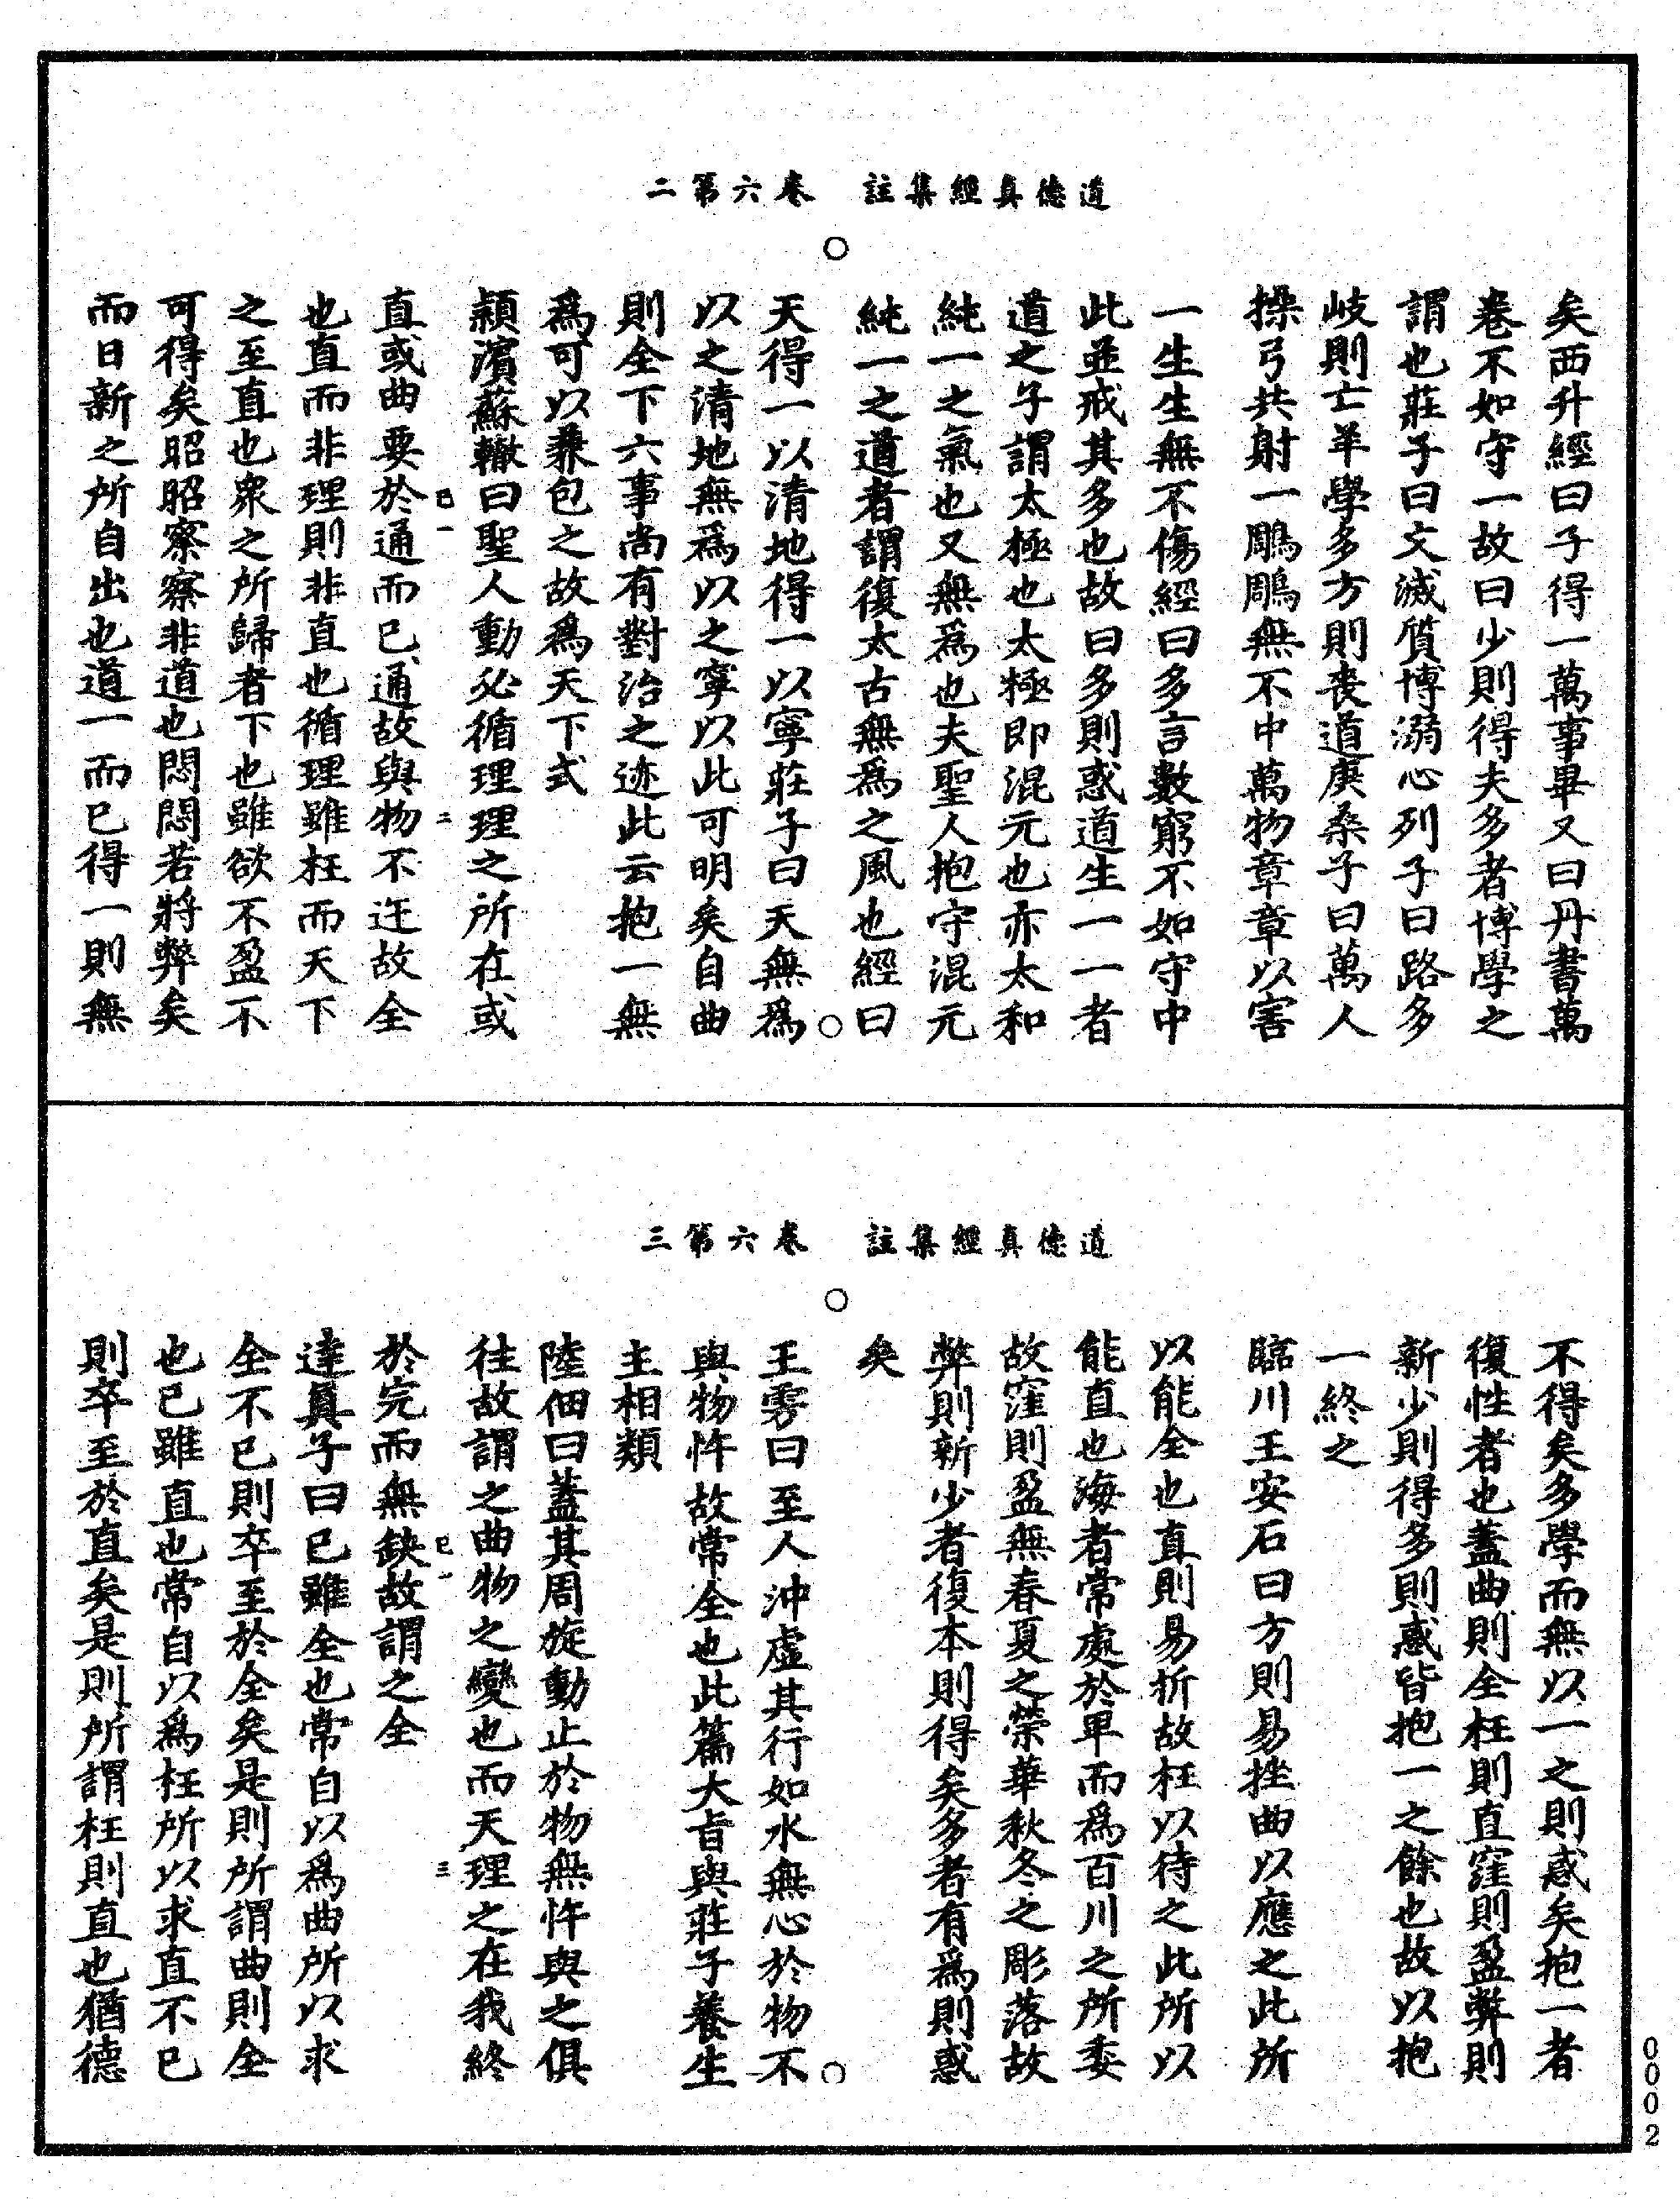 道德真經集註　卷六第二
矣西升經曰子得一萬事畢又曰丹書萬
卷不如守一故曰少則得夫多者博學之
謂也莊子曰文滅質博溺心列子曰路多
岐則亡羊學多方則喪道庚桑子曰萬人
操弓共射一鵰鵰無不中萬物章章以害
一生生無不傷經曰多言數窮不如守中
此並戒其多也故曰多則惑道生一一者
道之子謂太極也太極即混元也亦太和
純一之氣也又無爲也夫聖人抱守混元
純一之道者謂復太古無爲之風也經曰
天得一以清地得一以寧莊子曰天無爲
以之清地無爲以之寧以此可明矣自曲
則全下六事尚有對治之迹此云抱一無
爲可以兼包之故爲天下式
潁濱蘇轍曰聖人動必循理理之所在或
直或曲要於通而已通故與物不迕故全
也直而非理則非直也循理雖枉而天下
之至直也衆之所歸者下也雖欲不盈不
可得矣昭昭察察非道也悶悶若將弊矣
而日新之所自出也道一而已得一則無
巳一
二
道德真經集註　卷六第三
不得矣多學而無以一之則惑矣抱一者
復性者也蓋曲則全枉則直窪則盈弊則
新少則得多則惑皆抱一之餘也故以抱
一終之
臨川王安石曰方則易挫曲以應之此所
以能全也直則易折故枉以待之此所以
能直也海者常處於卑而爲百川之所委
故窪則盈無春夏之榮華秋冬之彫落故
弊則新少者復本則得矣多者有爲則惑
矣
王雱曰至人沖虛其行如水無心於物不
與物忤故常全也此篇大旨與莊子養生
主相類
陸佃曰蓋其周旋動止於物無忤與之俱
往故謂之曲物之變也而天理之在我終
於完而無缺故謂之全
達真子曰已雖全也常自以爲曲所以求
全不已則卒至於全矣是則所謂曲則全
也已雖直也常自以爲枉所以求直不已
則卒至於直矣是則所謂枉則直也猶德
巳一
三
0002